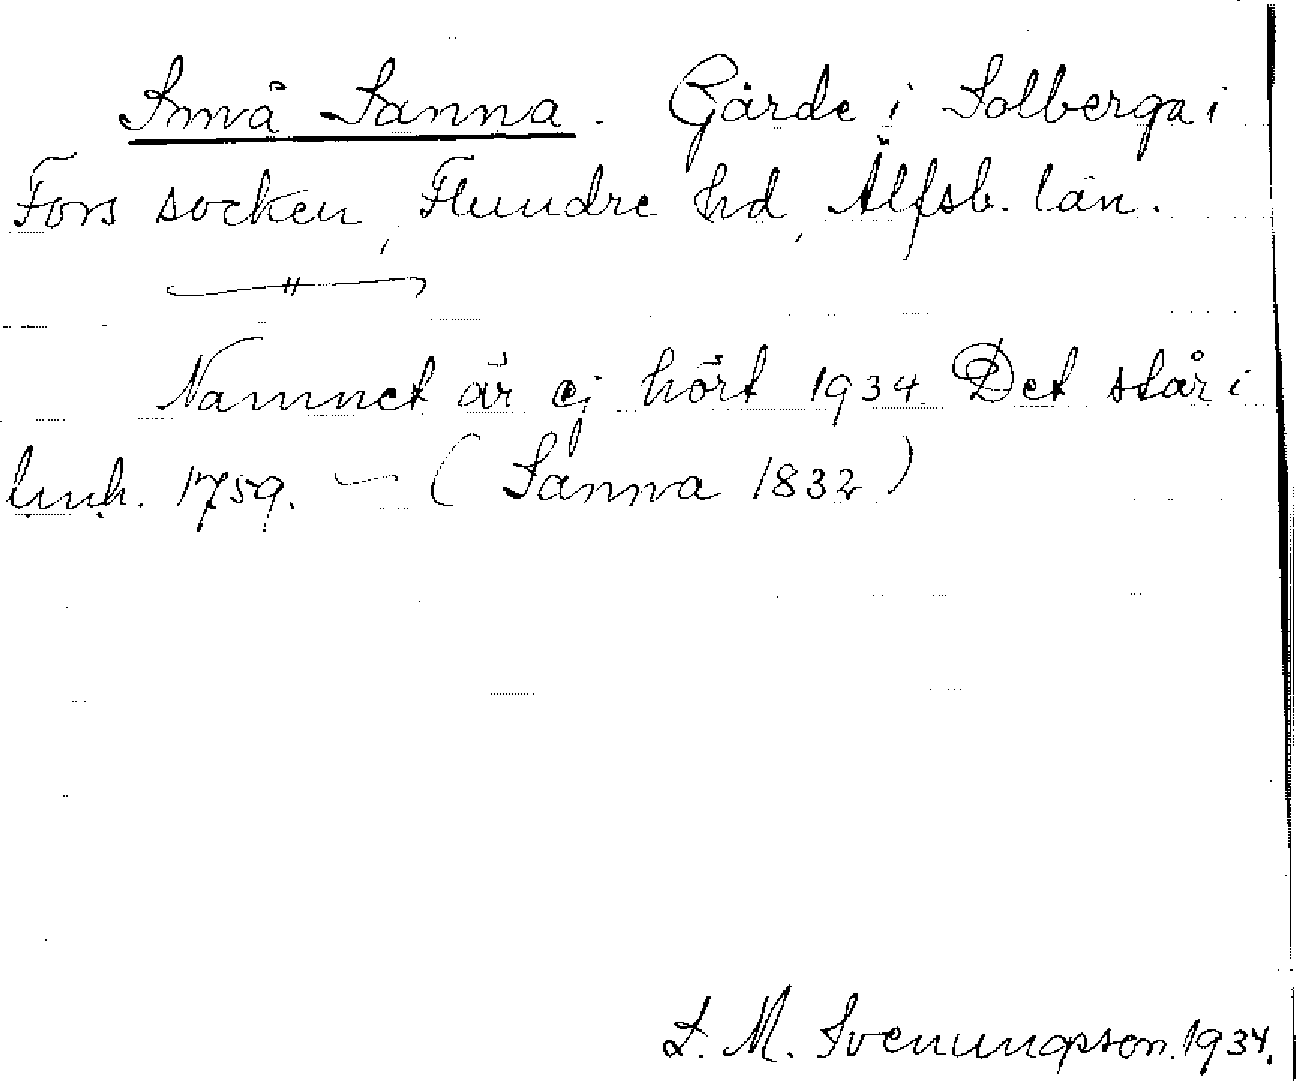 Små Sanna. Gärde i Solberga i
Fors socken, Flundre hd, Älfsb. län.
Namnet är ej hört 1934 Det står i
lmh. 1759. — (Sanna 1832)
S. M. Svenungsson. 1934.